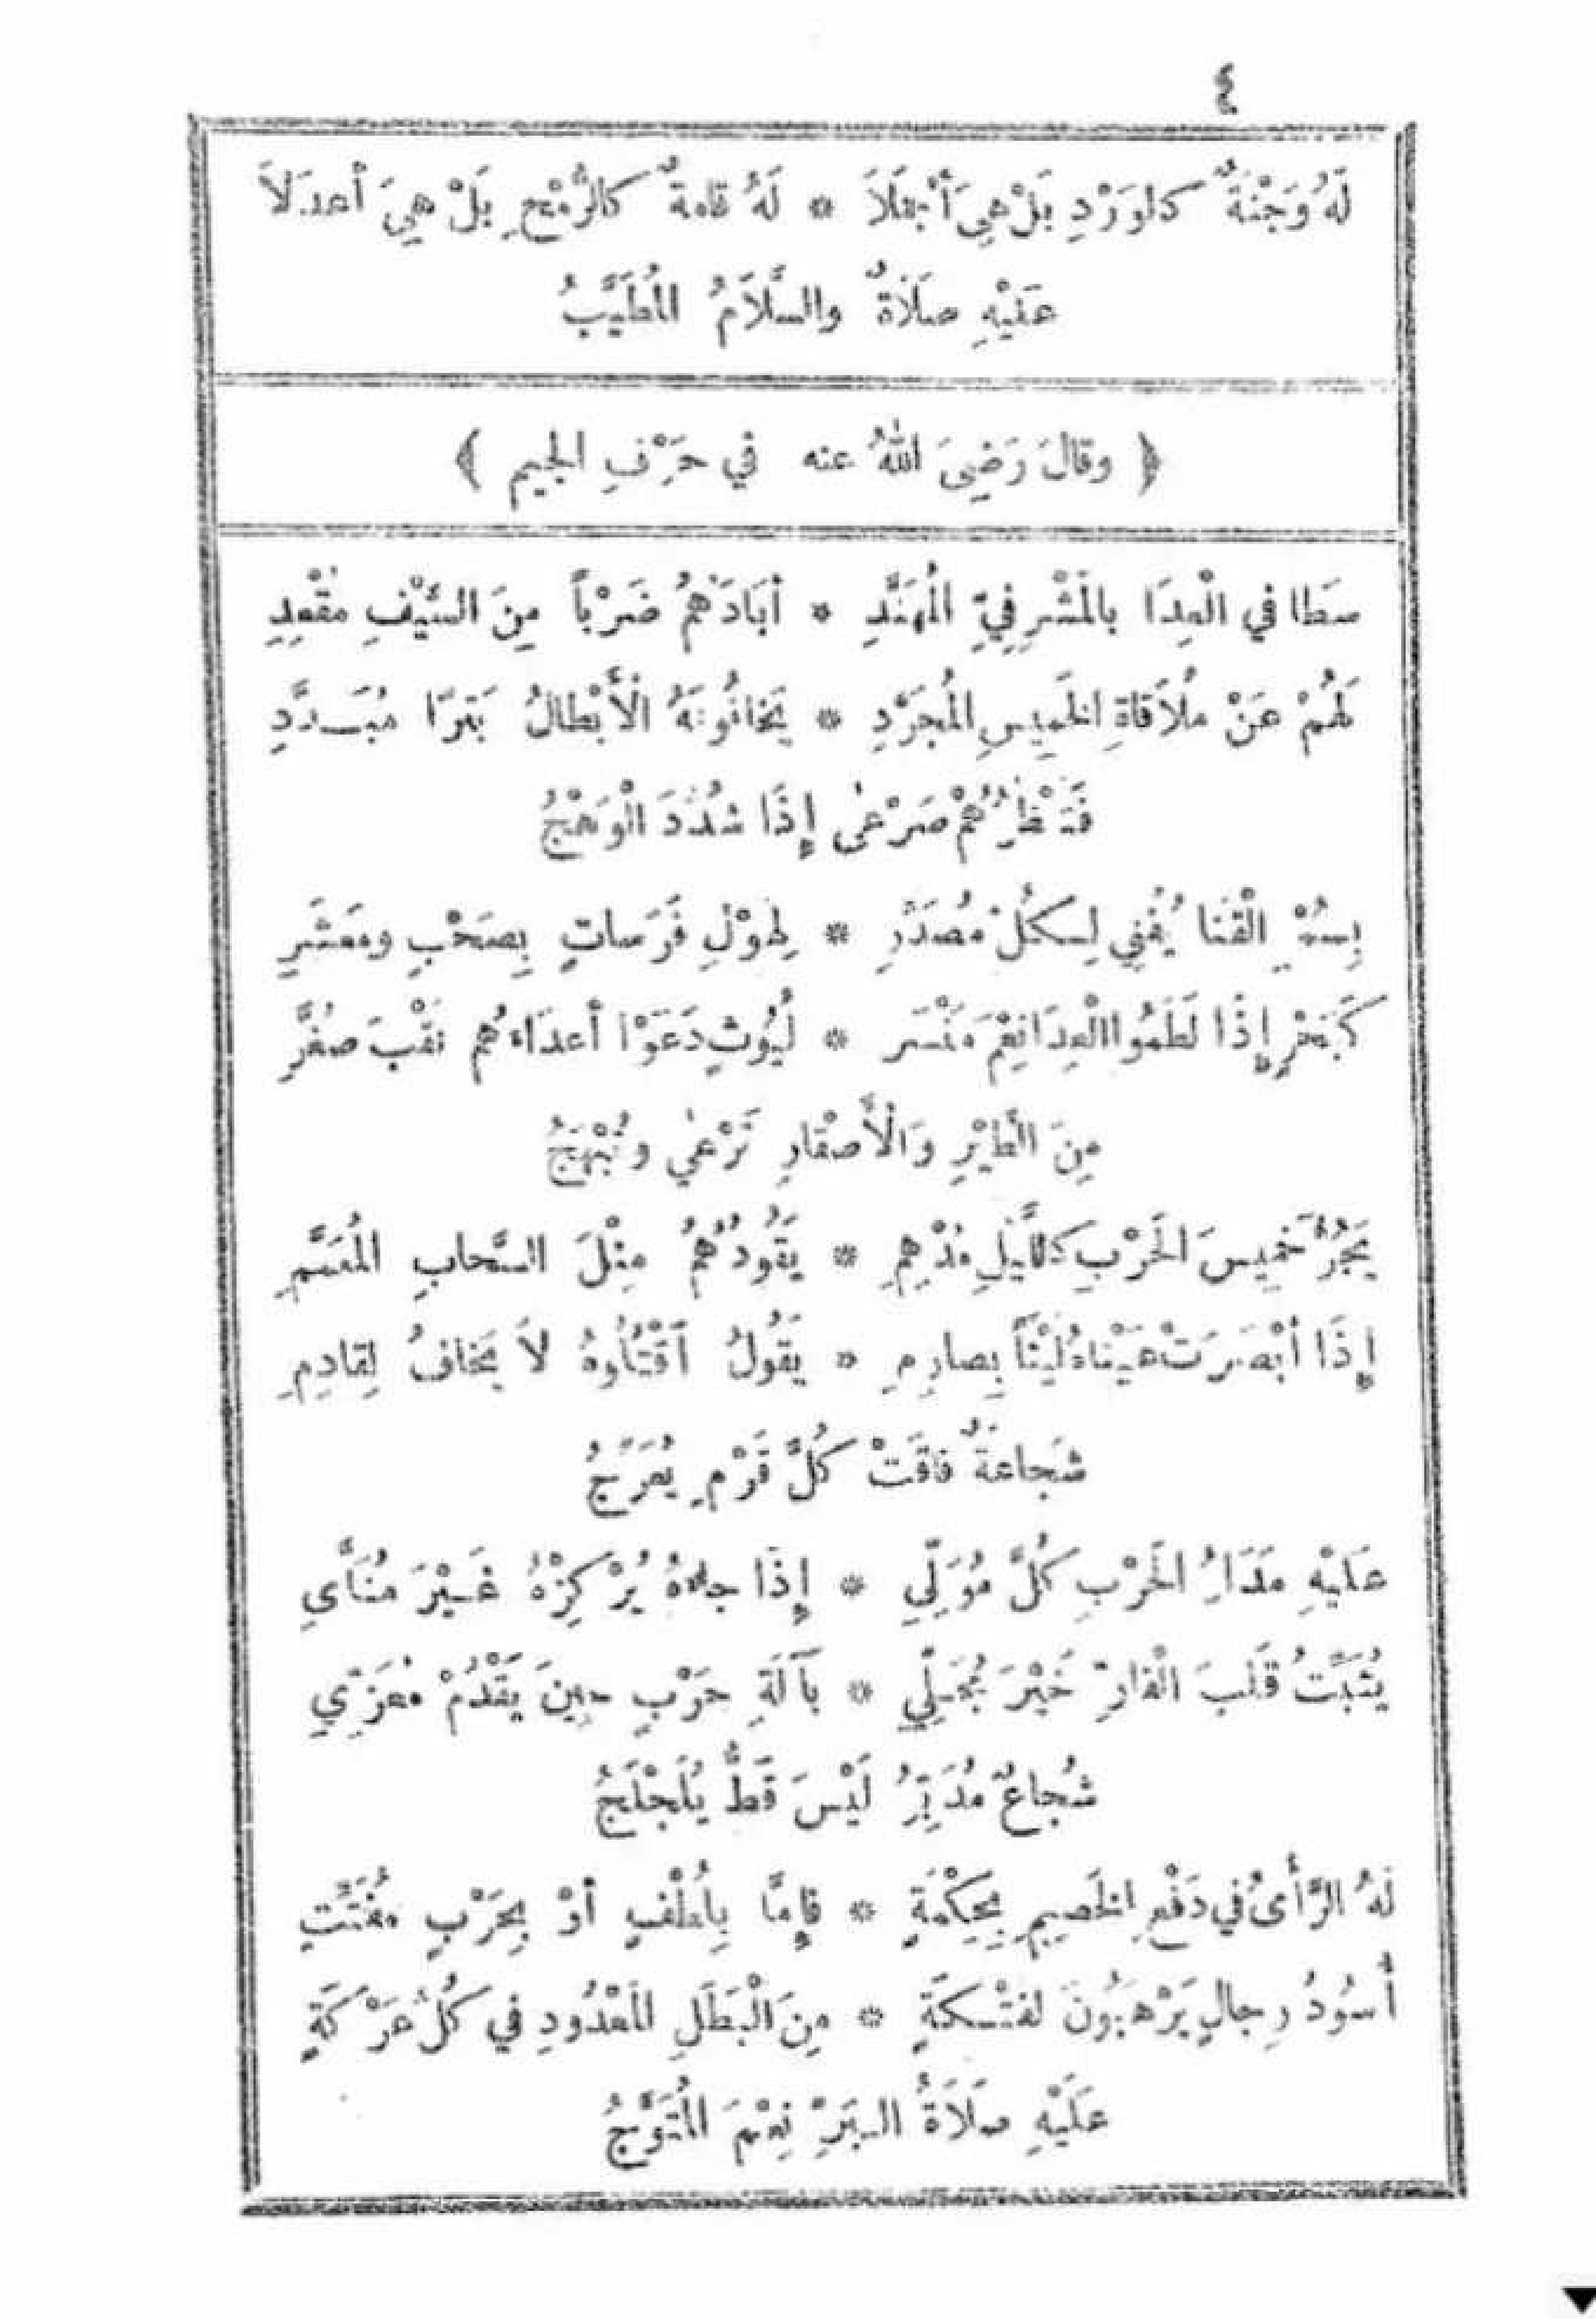 ٤
لَهُ وَجْنَةٌ كالوَرْدِ بَلْ هِيَ أَجْمَلاَ * لَهُ قامةٌ كالرُّمْحِ بَلْ هِيَ أعدَلاَ
عَلَيْهِ صلَاةٌ والسَّلاَمُ المُطَيَّبُ
﴿ وقالَ رَضِىَ اللهُ عنه في حَرْفِ الجيم ﴾
سَطا في الْعِدَا بالمَشْرِفِيِّ المُهَنَّدِ * أبَادَهُمُ ضَرْباً مِنَ السَّيْفِ مُقْعِدِ
لَهُمْ عَنْ مُلاَقاةِ الخَمِيسِ المُجَرَّدِ * يَخافُونَهُ الْأَبْطالُ بَتْرًا مُبَدَّدِ
فَتَنْظُرُهُمْ صَرْعٰى إِذَا شُدِّدَ الْوَهْجُ
بِسُمْرِ الْقَنا يُفْنِي لِكُلِّ مُصَدَّرِ * طِوْلِ فَرَسَاتٍ بِصَحْبٍ ومَعْشَرِ
إِذَا لَطَمُوا الْعِدَا نِعْمَ مَنْسَرِ * لُيُوثٍ دَعَوْا أعدَاءَهُم نَقْبَ صُغَّرِ
مِنَ الطَيْرِ وَالْأَصْقارِ تَرْعٰي وتُبْهَجُ
يَجُرُّ خَمِيسَ الحَرْبِ كاللَّيْلِ مُدْهِمِ * يَقُودُهُمُ مِثْلَ السَّحابِ المُغَمِّمِ
إِذَا أبْصَرَتْ عَيْناهُ لَيْثاً بِصارِمِ * يَقُولُ اقْتُلُوهُ لاَ يَخافُ لِقادِمِ
شَجاعَةٌ فاقَتْ كُلَّ قَرْمٍ يُعَرَّجُ
عَلَيْهِ مَدَارُ الحَرْبِ كُلَّ مُوَلِّيِ * إِذَا جاءهُ يُرْكِزْهُ غَيْرَ مُنَأَّىِ
يُثَبِّتُ قَلْبَ الْفارِّ خَيْرَ مُجَلِّيِ * بآلَةِ حَرْبٍ حِينَ يَقْدُمُ مُعَزِّيِ
شُجاعٌ مُدَبِّرُ لَيْسَ قَطُّ يُلَجْلَجُ
لَهُ الرَّأْىُ في دَفْعِ الخَصِيمِ بِحِكْمَةٍ * فإِمَّا بِلُطْفٍ أوْ بِحَرْبٍ مُفَتِّتِ
أُسُودُ رِجالٍ يَرْهَبُونَ لفَتْكَةٍ * مِنَ الْبَطَلِ المَعْدُودِ في كُلِّ عَرْكَةٍ
عَلَيْهِ صلَاَةُ البَرِّ نِعْمَ المُتَوَّجُ